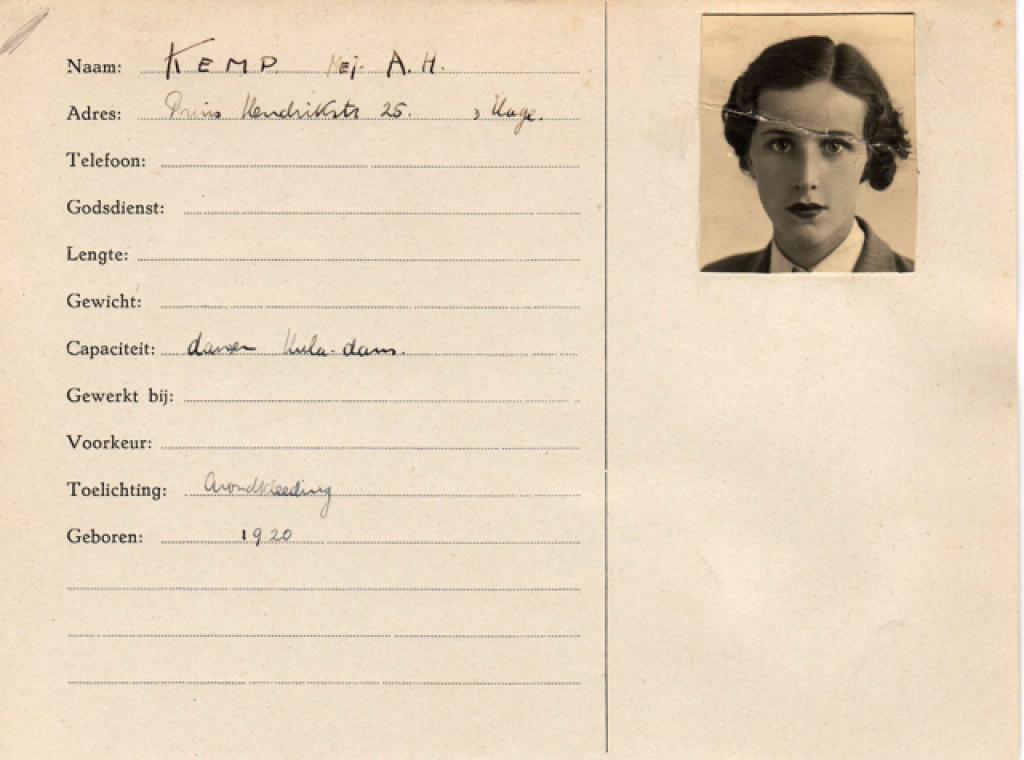 Naam: KEMP Mej. A. H.
Adres: Prins Hendrikstr 25. , Hage.
Telefoon:
Godsdienst:
Lengte:
Gewicht:
Capaciteit: dansen Hula-dans.
Gewerkt bij:
Voorkeur:
Toelichting: Avondkleeding
Geboren: 1920